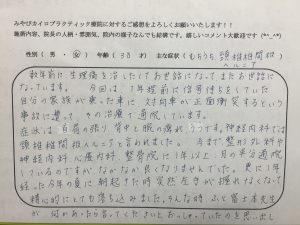 みやびカイロプラクティック療院に対するご感想をよろしくお願いいたします!!
施術内容、院長の人柄・雰囲気、院内の様子なんでも結構です。嬉しいコメント大歓迎です (*^_^*)
性別(男・女) 年齢(33才) 主な症状(むちうち 頚椎椎間板ヘルニア)
数年前に生理痛を治したくてお世話になってまたお世話に
なっています。 今回は1年程前に信号待ちをしていた
自分の家族が乗った車に対向車が正面衝突するという
事故に遭って その治療で通院しています。
症状は首肩の張り 背中と腰の痛れ うつです。神経内科では
頚椎椎間板ヘルニアと言われました。 今まで整形外科や
神経内科 心療内科、整骨院に1年以上 月の半分通院
しているのですが なかなか良くなりませんでした。更に1年
経った今年の夏に朝起きた時突然左手が握れなくなって
精神的にとても落ち込みました。そんな時 ふと富士本先生
が 何かあったら言ってくださいと おっしゃっていたのを思い出し